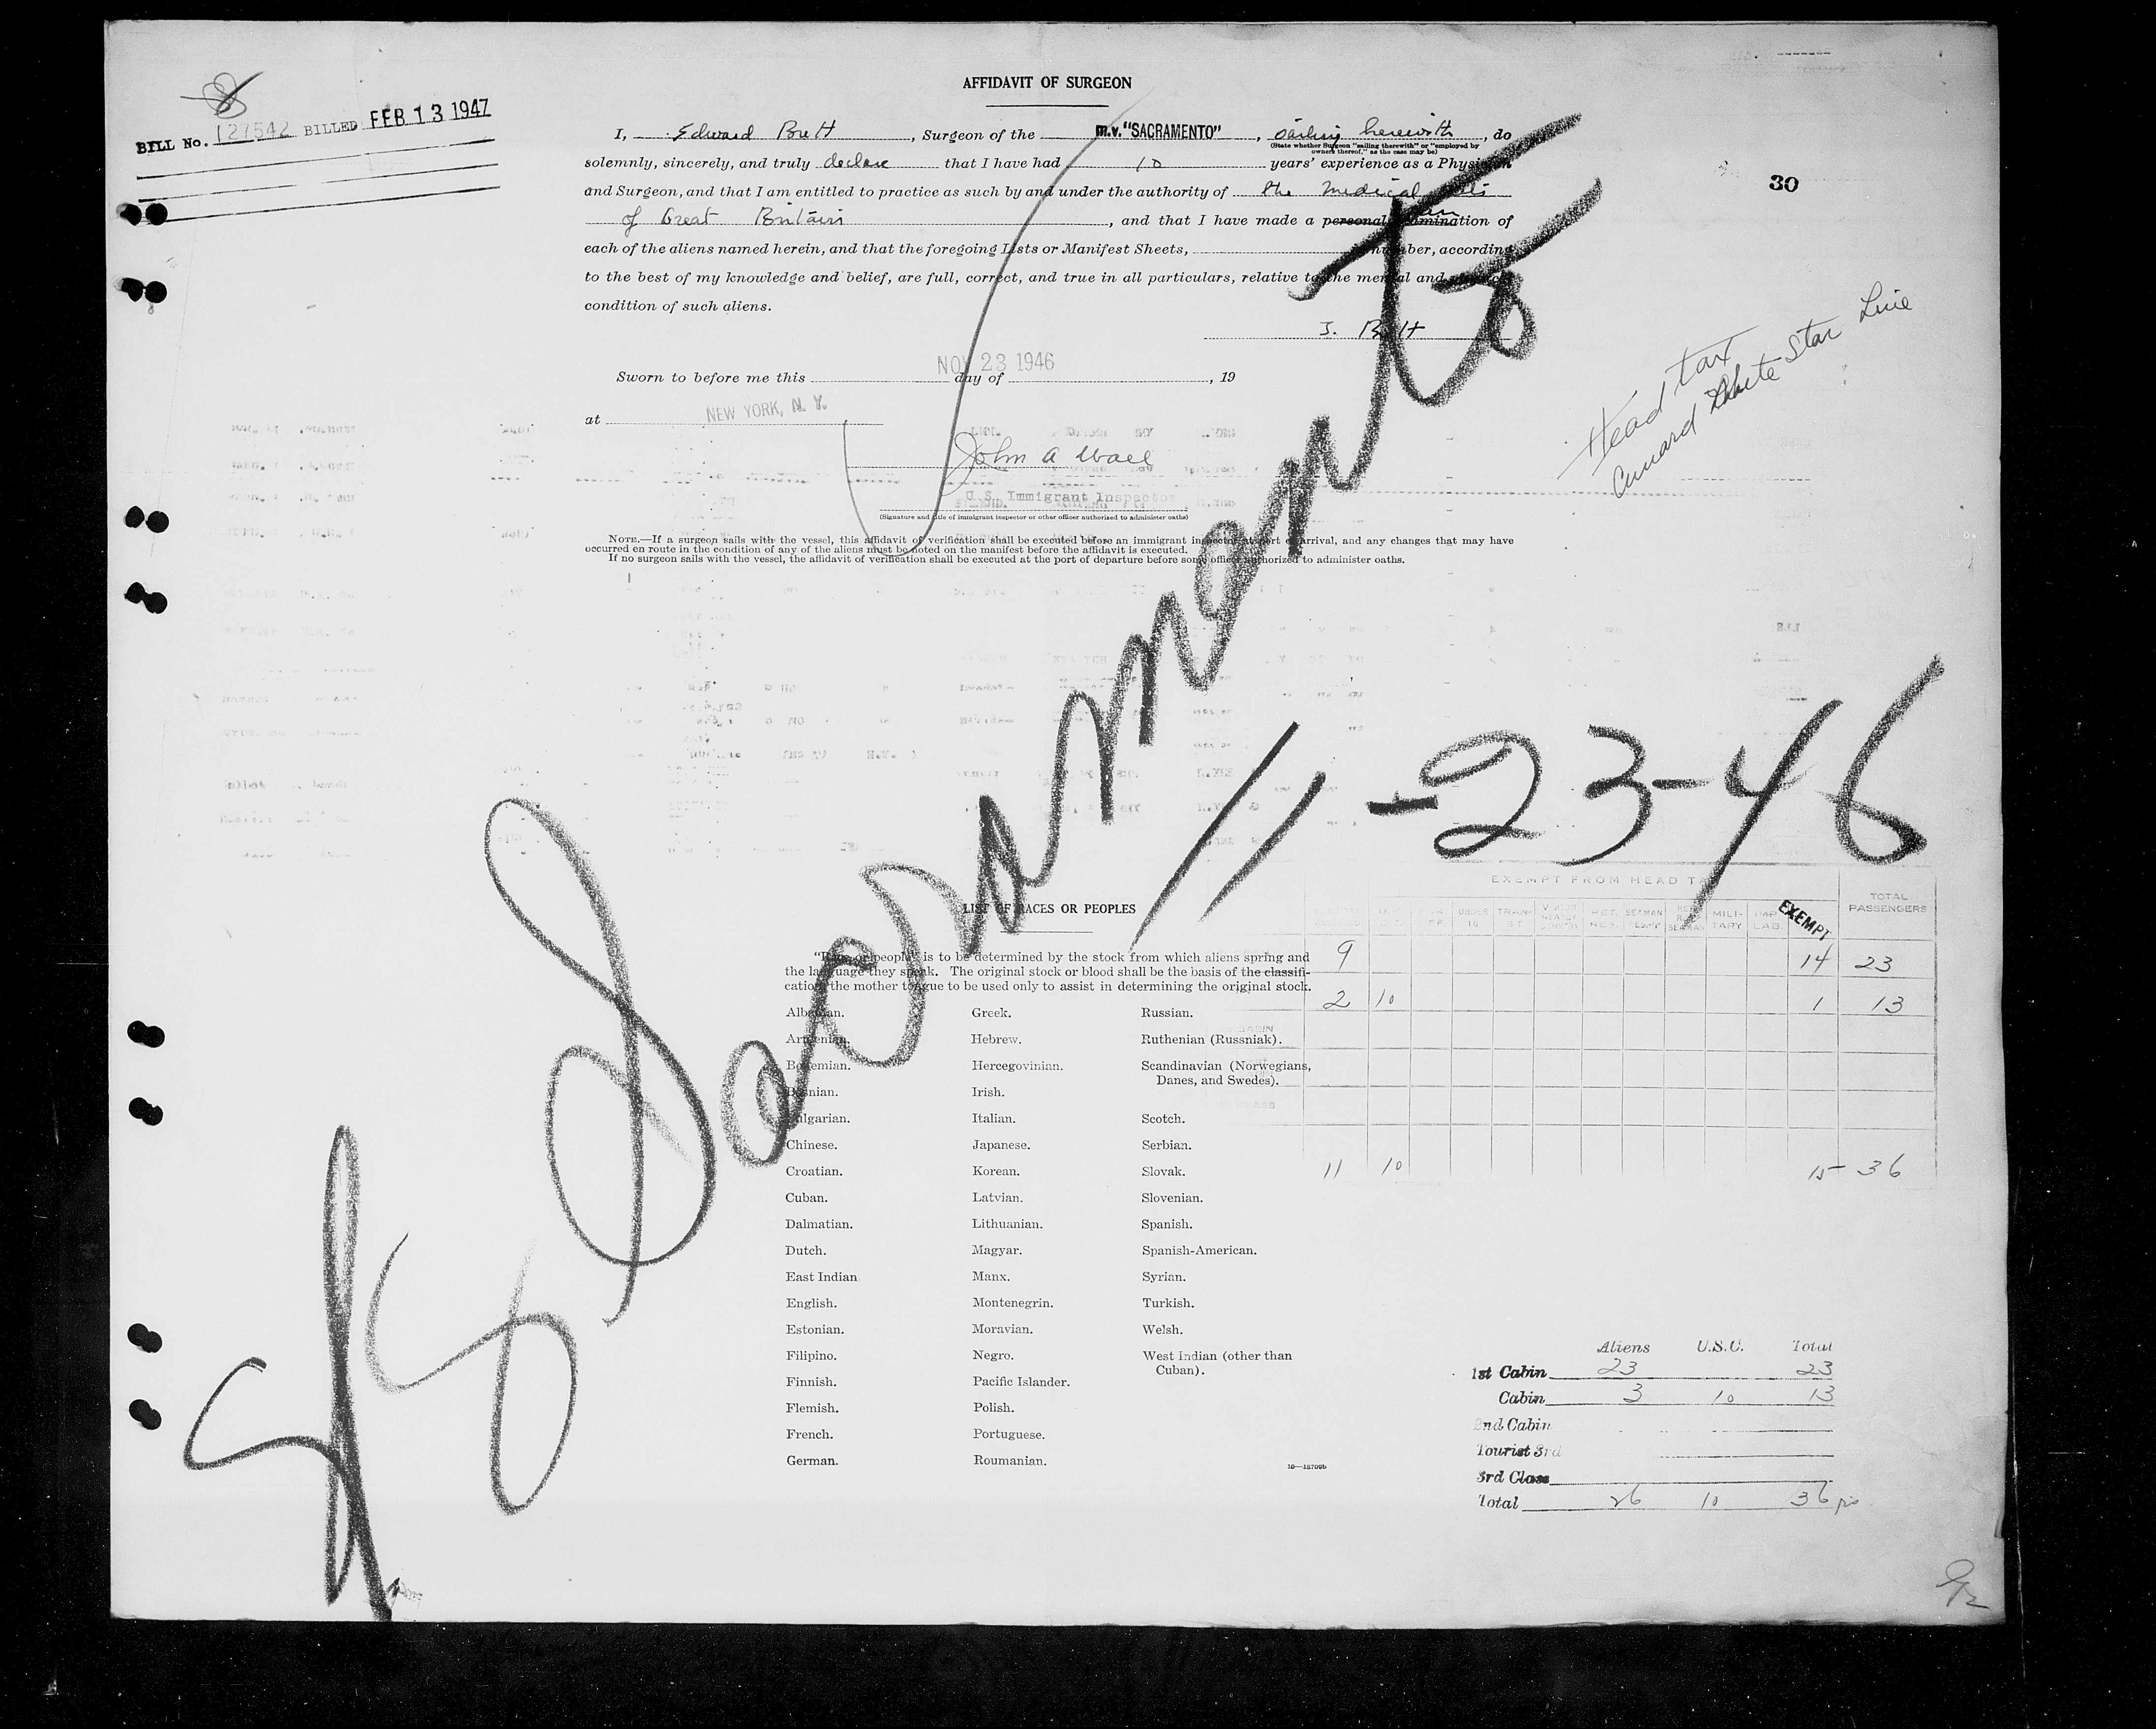 AFFIDAVIT OF SURGEON
BILL No. 127542 BILLED FEB 13 1947
I, Edward Brett, Surgeon of the m.v. "SACRAMENTO", sailing herewith, do
(State whether Surgeon "sailing therewith" or "employed by
owners thereof," as the case may be)
solemnly, sincerely, and truly declare that I have had 10 years' experience as a Physician
and Surgeon, and that I am entitled to practice as such by and under the authority of the Medical
30
of Great Britain, and that I have made a personal examination of
each of the aliens named herein, and that the foregoing Lists or Manifest Sheets, number, according
to the best of my knowledge and belief, are full, correct, and true in all particulars, relative to the mental and
condition of such aliens.
Brett
Head tax
Cunard White Star Line
NOV 23 1946
Sworn to before me this day of , 19
at NEW YORK, N. Y.
John A Wall
U.S. Immigrant Inspector
(Signature and title of immigrant inspector or other officer authorized to administer oaths)
NOTE.—If a surgeon sails with the vessel, this affidavit of verification shall be executed before an immigrant inspector at port of arrival, and any changes that may have
occurred en route in the condition of any of the aliens must be noted on the manifest before the affidavit is executed.
If no surgeon sails with the vessel, the affidavit of verification shall be executed at the port of departure before some officer authorized to administer oaths.
SS Sacramento
11-23-46
EXEMPT FROM HEAD TAX
UNDER 16 TRAN- SIT RET. RES. SEAMAN MILI- TARY IMP LAB. EXEMPT TOTAL PASSENGERS
9 14 23
2 10 1 13
11 10 15 36
LIST OF RACES OR PEOPLES
"Race or people" is to be determined by the stock from which aliens spring and
the language they speak. The original stock or blood shall be the basis of the classifi-
cation, the mother tongue to be used only to assist in determining the original stock.
Albanian. Greek. Russian.
Armenian. Hebrew. Ruthenian (Russniak).
Bohemian. Hercegovinian. Scandinavian (Norwegians,
Danes, and Swedes).
Bosnian. Irish.
Bulgarian. Italian. Scotch.
Chinese. Japanese. Serbian.
Croatian. Korean. Slovak.
Cuban. Latvian. Slovenian.
Dalmatian. Lithuanian. Spanish.
Dutch. Magyar. Spanish-American.
East Indian Manx. Syrian.
English. Montenegrin. Turkish.
Estonian. Moravian. Welsh.
Filipino. Negro. West Indian (other than
Cuban).
Finnish. Pacific Islander.
Flemish. Polish.
French. Portuguese.
German. Roumanian.
16—18709b
Aliens U.S.C. Total
1st Cabin 23 23
Cabin 3 10 13
2nd Cabin
Tourist 3rd
3rd Class
Total 26 10 36